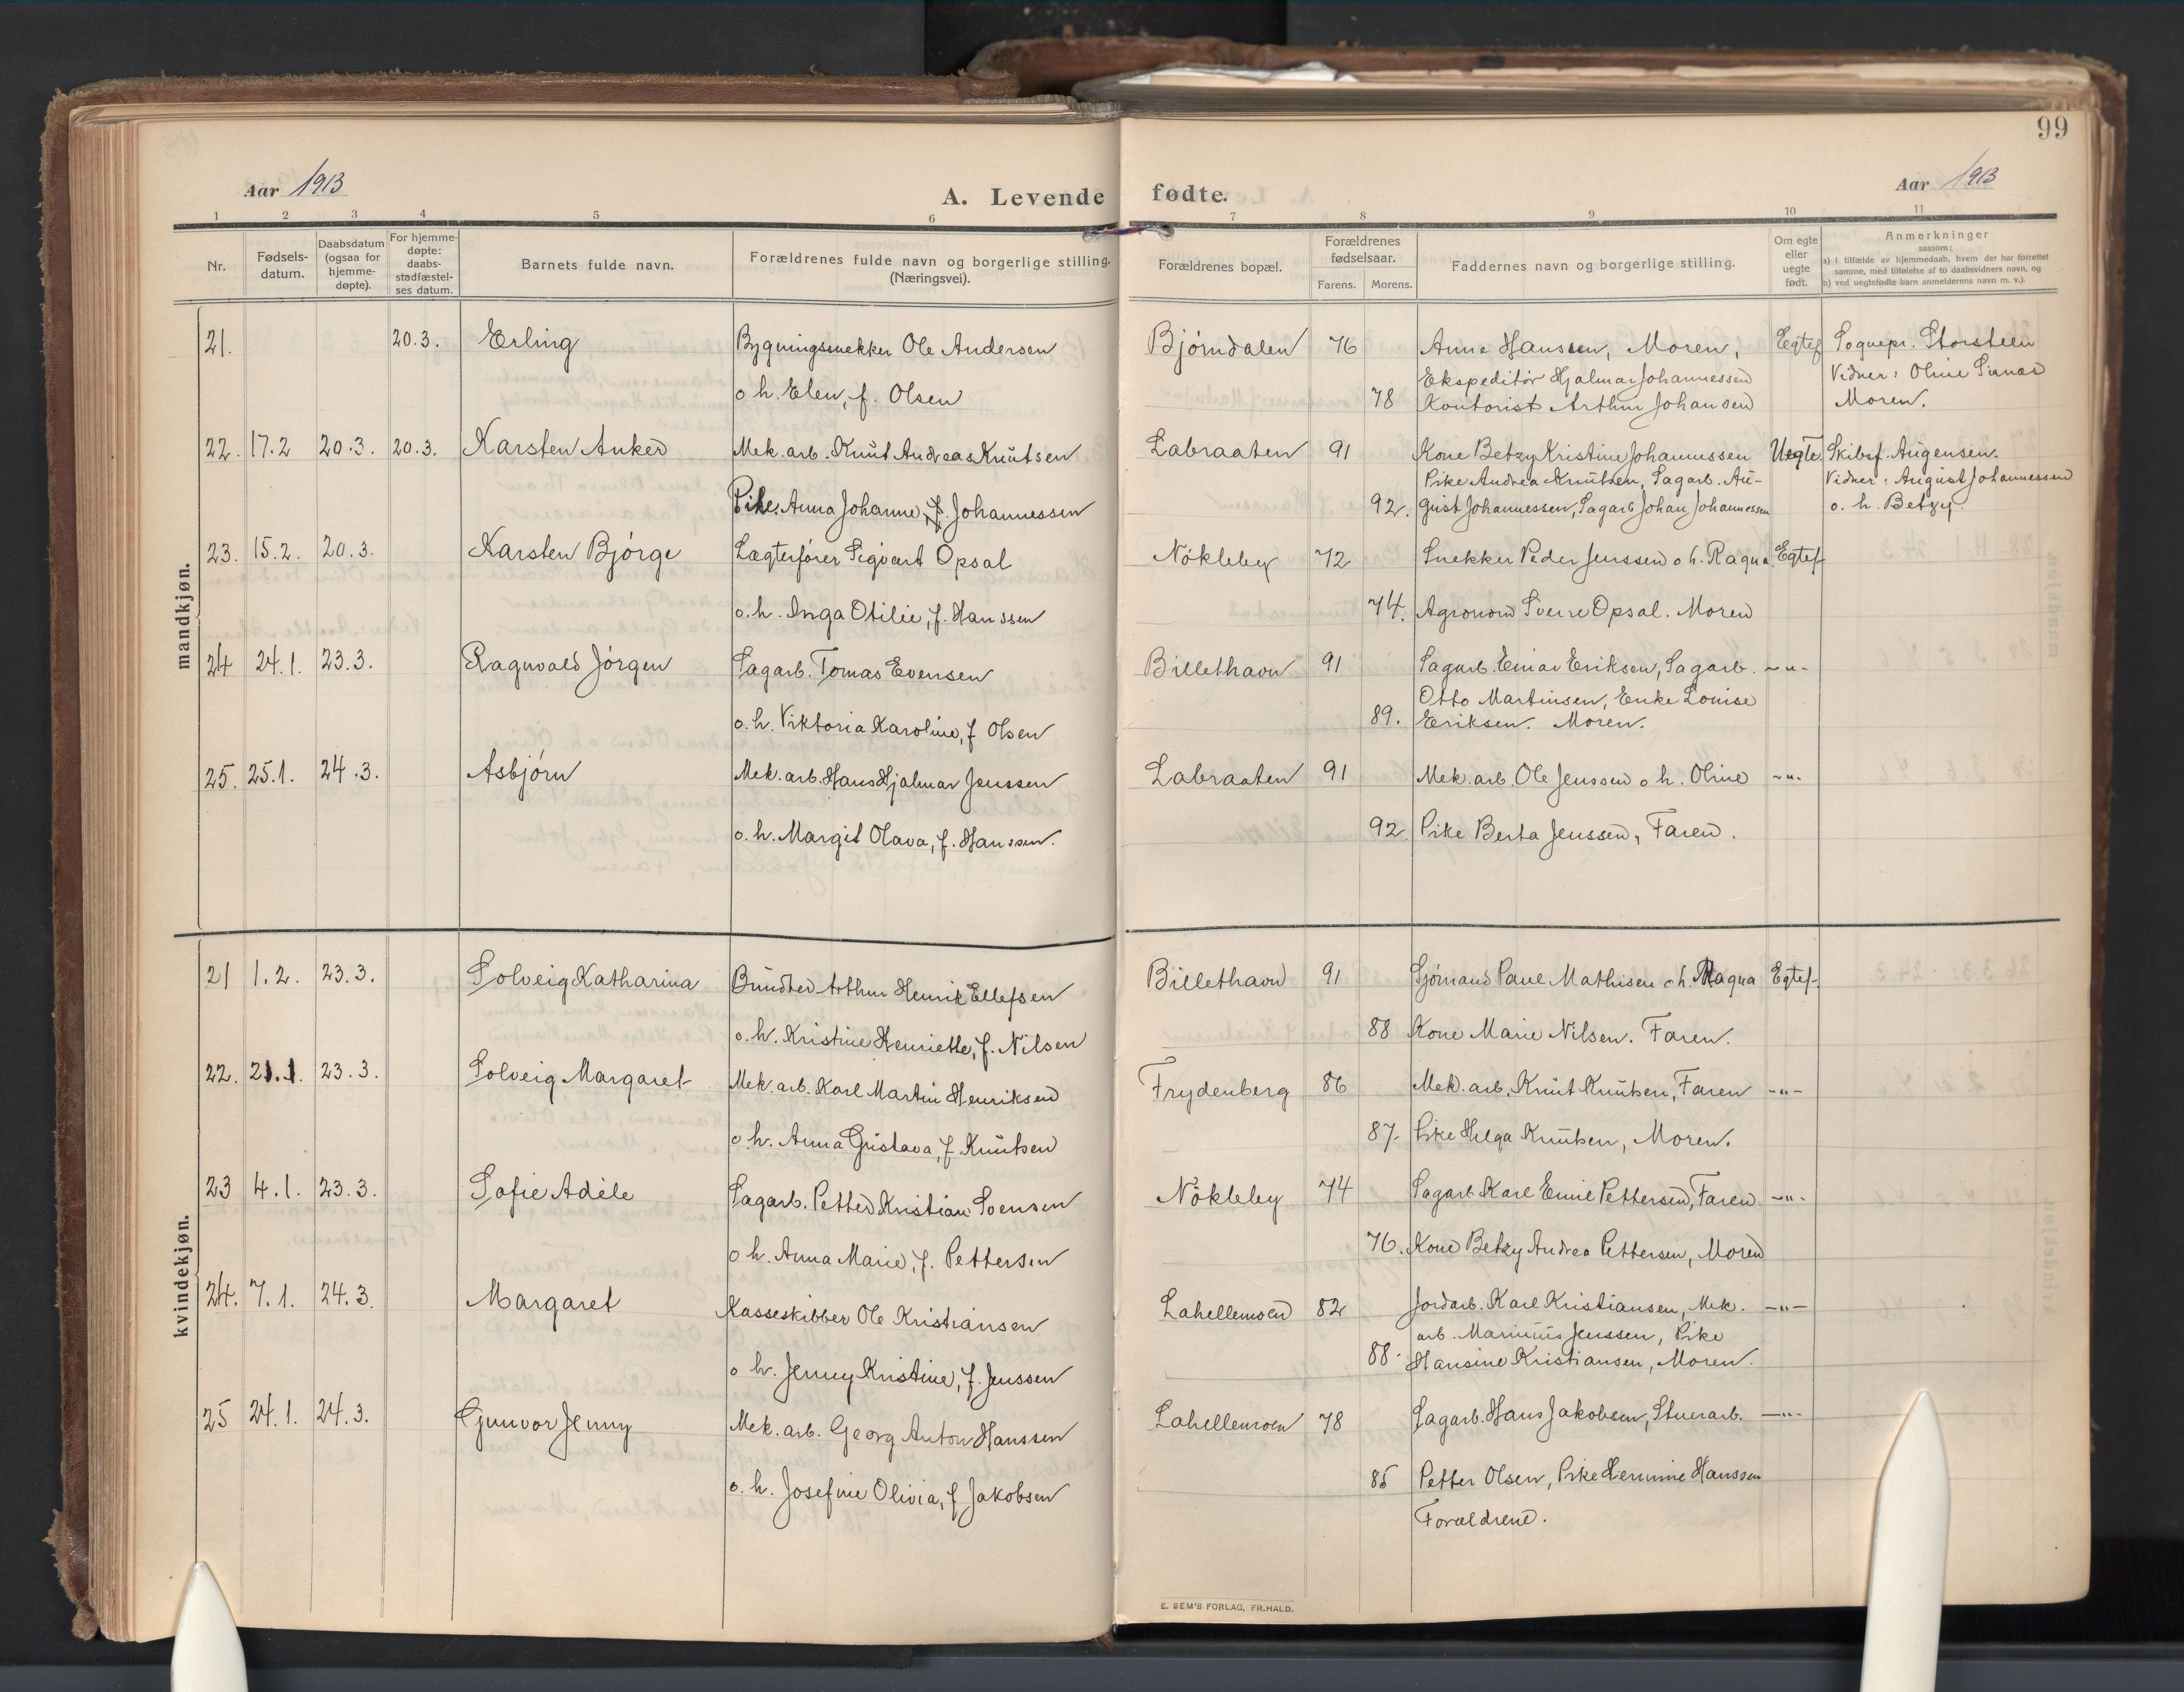 99
Aar 1913
A. Levende fødte.
Aar 1913
1 2 3 4 5 6 7 8 9 10 11
Nr.
Fødsels-
datum.
Daabsdatum
(ogsaa for
hjemme-
døpte).
For hjemme-
døpte:
daabs-
stadfæstel-
ses datum.
Barnets fulde navn.
Forældrenes fulde navn og borgerlige stilling.
(Næringsvei).
Forældrenes bopæl.
Forældrenes
fødselsaar.
Farens. Morens.
Faddernes navn og borgerlige stilling.
Om egte
eller
uegte
født.
Anmerkninger
saasom:
a) i tilfælde av hjemmedaab, hvem der har forrettet
samme, med tilføielse af to daabsvidners navn, og
b) ved uegtefødte barn anmelderens navn m. v.).
mandkjøn.
21. 20.3. Erling Bygningssnekker Ole Andersen Bjørndalen 76 Anne Hanssen, Moren, Egtef Sognepr. Storsteen
Ekspeditør Hjalmar Johannessen Vidner: Oline
o h. Elen, f. Olsen 78 Kontorist Arthur Johansen Moren.
22. 17.2 20.3. 20.3. Karsten Anker Mek. arb. Knut Andreas Knutsen Labraaten 91 Kone Betzy Kristine Johannessen Uegte. Skibsf. Augensen.
Pike Andrea Knutsen, Sagarb. Au- Vidner: August Johannessen
Pike. Anna Johanne, f. Johannessen 92. gust Johannessen, Sagarb Johan Johannessen o. h. Betzy.
23. 15.2. 20.3. Karsten Bjørge Lægterfører Sigvart Opsal Nökleby 72 Snekker Peder Jenssen o h. Ragna Egtef
o. h. Inga Otilie, f. Hanssen 74. Agronom Sverre Opsal. Moren
24 24.1. 23.3. Ragnvald Jørgen Sagarb. Tomas Evensen Billethavn 91 Sagarb. Einar Eriksen, Sagarb. -"-
Otto Martinsen, Enke Louise
o. h. Viktoria Karoline, f Olsen 89. Eriksen. Moren.
25. 25.1. 24.3. Asbjørn Mek. arb. Hans Hjalmar Jenssen Labraaten 91 Mek. arb. Ole Jenssen o h. Oline -"-
o. h. Margit Olava, f. Hanssen. 92. Pike Berta Jenssen, Faren.
kvindekjøn.
21 1.2. 23.3. Solveig Katharina Arthur Henrik Ellefsen Billethavn 91 Sjømand Paul Mathisen o h. Ragna Egtef
o. h. Kristine Henriette, f. Nilsen 88 Kone Marie Nilsen. Faren.
22. 21.1. 23.3. Solveig Margaret Mek. arb. Karl Martin Henriksen Frydenberg 86 Mek. arb. Knut Knutsen, Faren -"-
o h. Anna Gustava, f Knutsen 87. Pike Helga Knutsen, Moren.
23 4.1. 23.3. Sofie Adèle Sagarb. Petter Kristian Svensen Nökleby 74 Sagarb. Karl Emil Pettersen, Faren -"-
o h. Anna Marie, f. Pettersen 76. Kone Betzy Andrea Pettersen, Moren
24. 7.1. 24.3. Margaret Kasseskibber Ole Kristiansen Lahellemoen 82 Jordarb. Karl Kristiansen, Mek. -"-
arb. Marinius Jenssen, Pike
o h. Jenny Kristine, f. Jenssen 88. Hansine Kristiansen, Moren.
25 24.1. 24.3. Gunvor Jenny Mek. arb. Georg Anton Hanssen Lahellemoen 78 Sagarb. Hans Jakobsen, Stuerarb. -"-
o. h. Josefine Olivia, f Jakobsen 85 Petter Olsen, Pike Hermine Hanssen
Forældrene.
E. SEM'S FORLAG, FR.HALD.